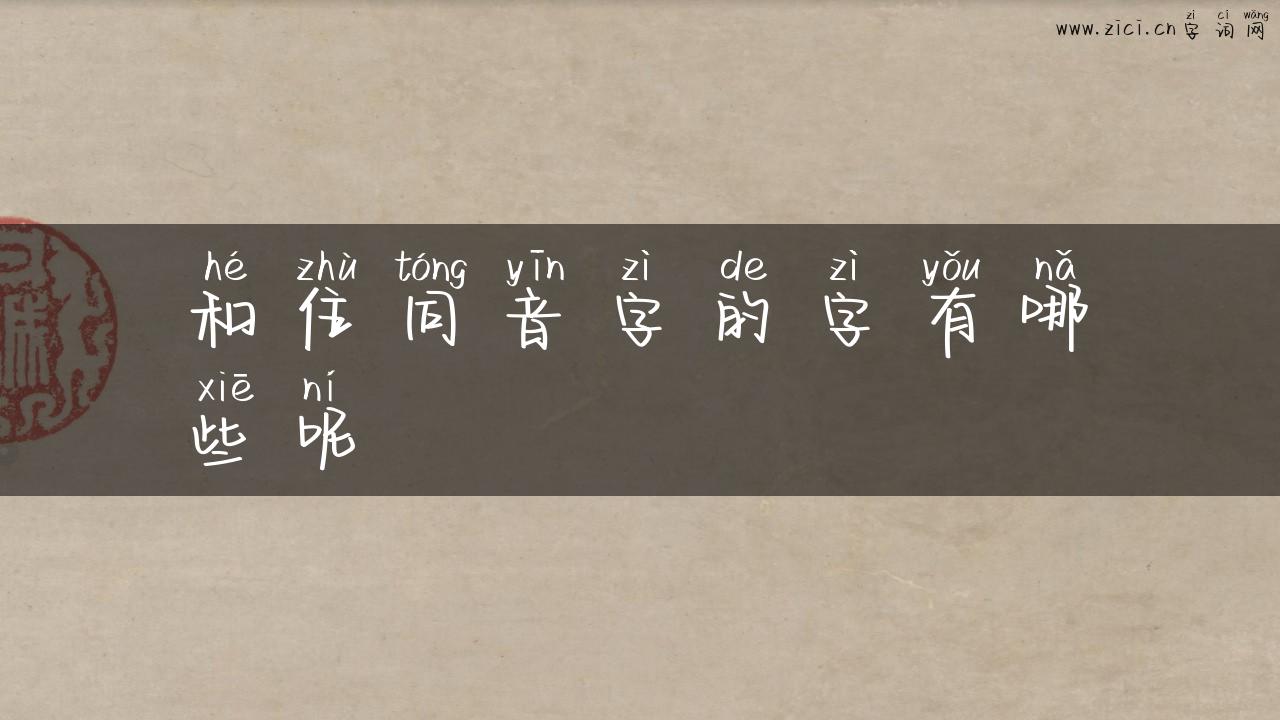 zì cí wǎng
www.zici.cn 字词网
hé zhù tóng yīn zì de zì yǒu nǎ
和住同音字的字有哪
xiē ní
些呢